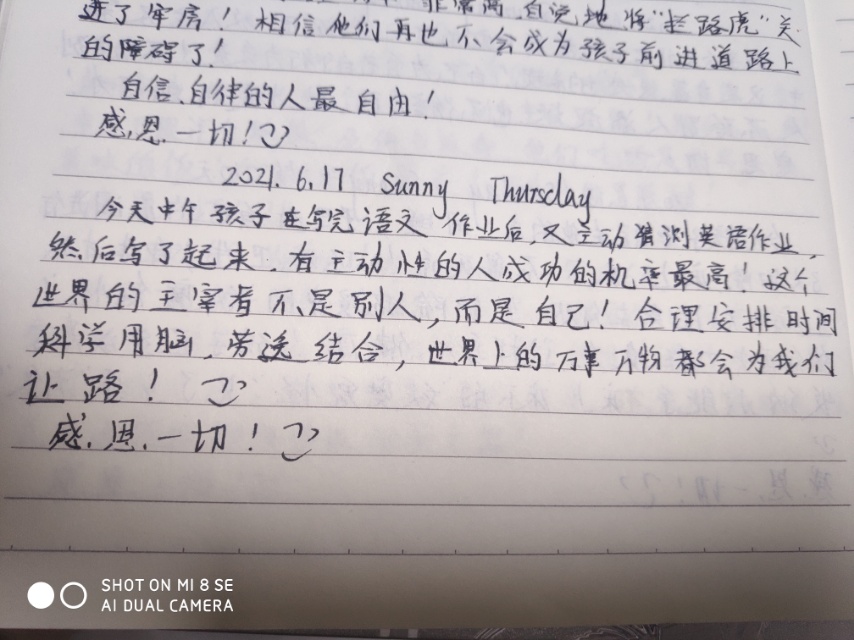 非常高 自觉地 将“拦路虎”关
进了牢房！相信他们再也不会成为孩子前进道路上
的障碍了！
自信、自律的人最自由！
感恩一切！
2021.6.17 Sunny Thursday
今天中午孩子在写完语文作业后，又主动猜测英语作业，
然后写了起来，有主动性的人成功的机率最高！这个
世界的主宰者不是别人，而是自己！合理安排时间
科学用脑，劳逸结合，世界上的万事万物都会为我们
让路！
感恩一切！
SHOT ON MI 8 SE
AI DUAL CAMERA